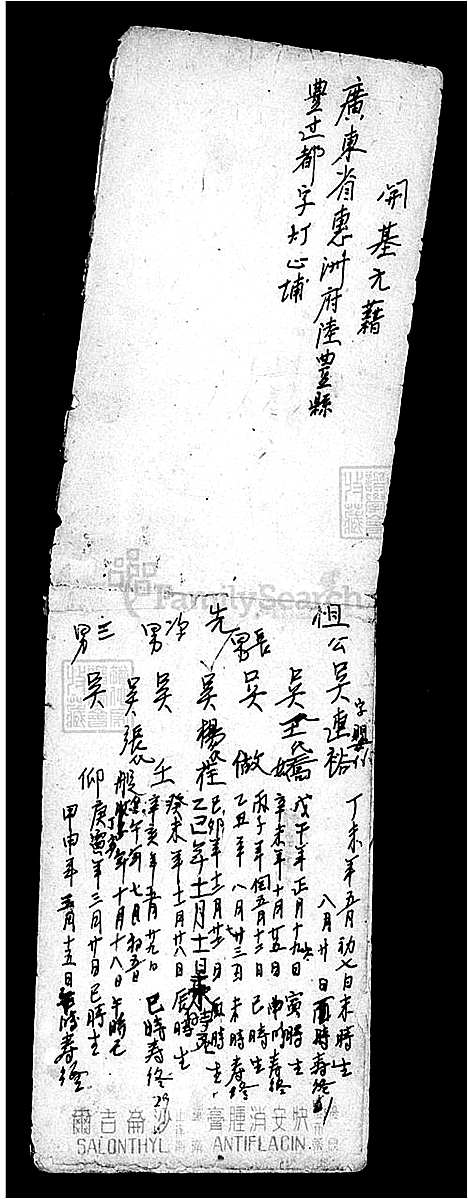 開基元藉
廣東省惠洲府陸豐縣
豐过都字灯心埔
祖公吳連裕
丁未年五月初七日未時生
八月廿日酉時壽終
吳 氏嬌
戊午年正月十九日寅時生
辛未年十月廿五日申時壽終
長男 吳 做
丙子年閏五月十二日巳時生
乙丑年八月廿三日未時壽終
先 吳楊 桂
己卯年十二月廿 日 時生
乙巳年十一月十一日
次男 吳 壬
癸未年十一月廿八日辰時生
辛亥年五月廿九日巳時壽終
吳張
午年七月初五日
年十月十八日午時
三男 吳 仰
庚寅年三月廿日巳時生
甲申年五月十五日 時壽終
爾吉侖沙 膏腫消安快
SALONTHYL ANTIFLACIN
FamilySearch